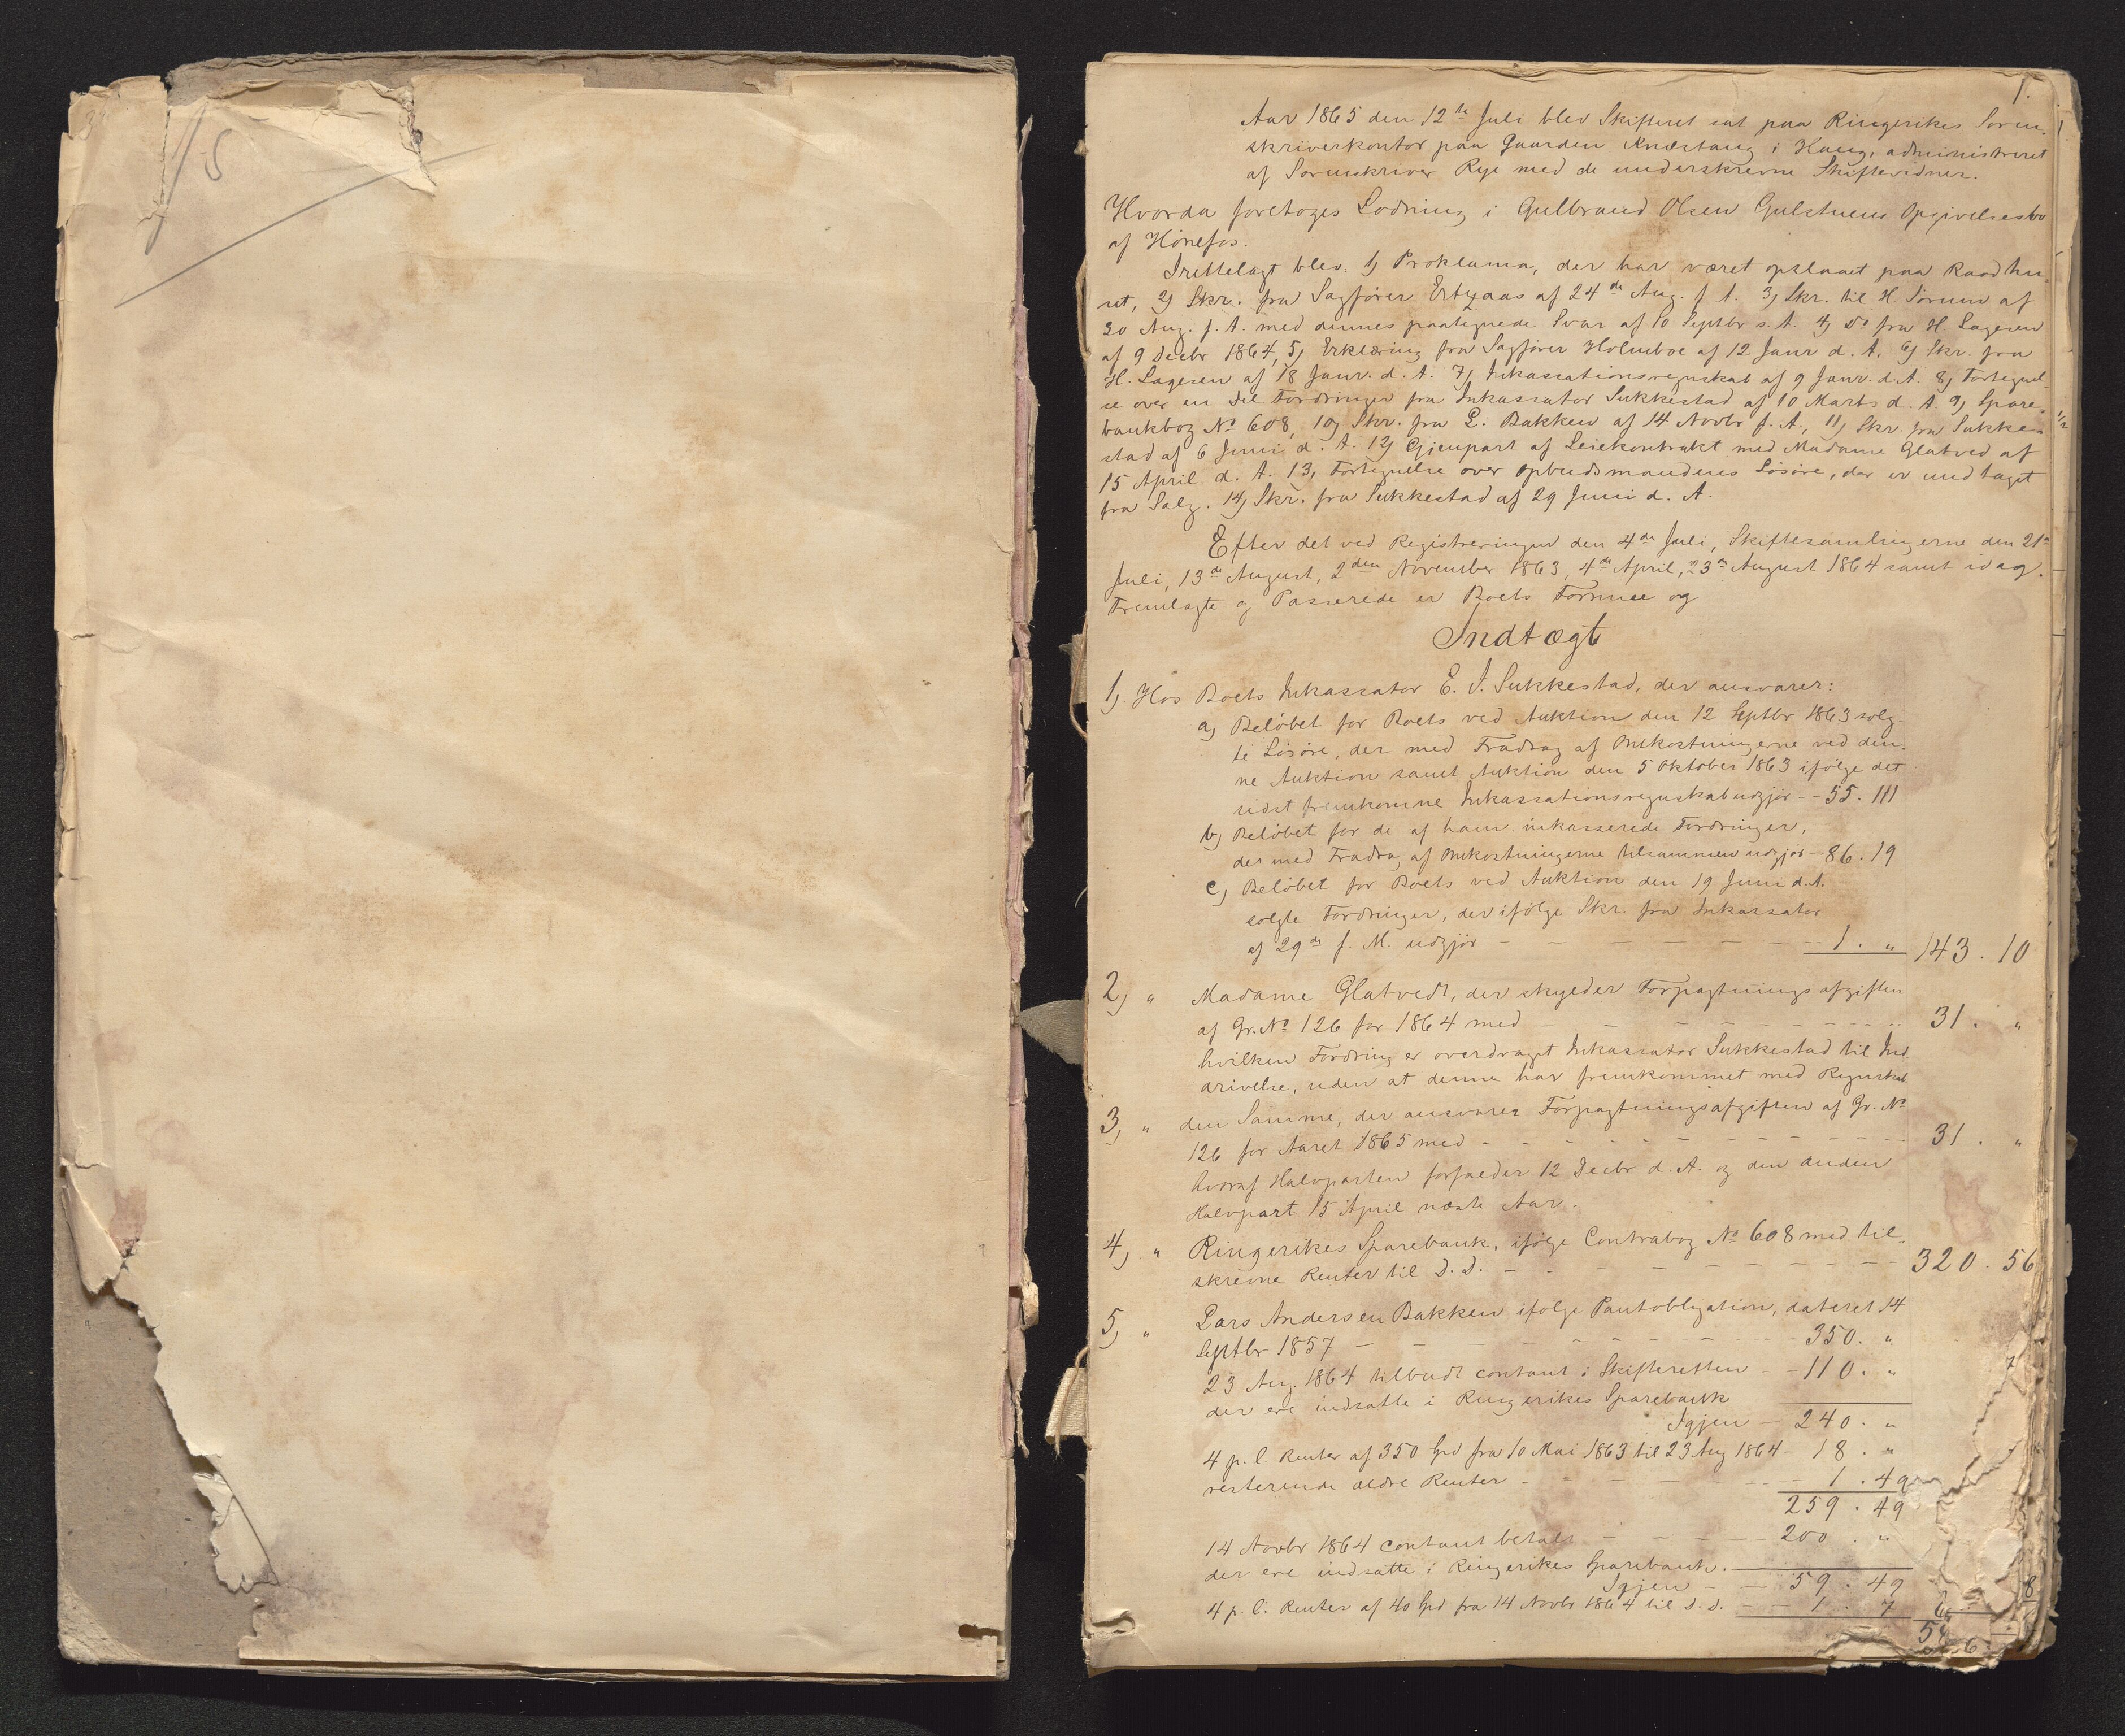 15
1.
Aar 1865 den 12te Juli blev Skifteret sat paa Ringerikes Soren-
skriverkontor paa Gaarden Knæstang i Haug, administreret
af Sorenskriver Rye med de underskrevne Skiftevidner.
Hvorda foretoges Lodning i Gulbrand Olsen Gulstuens Opgivelsesbo
af Hönefos.
Irettelagt blev. 1) Proklama, der har været opslaaet paa Raadhu-
set, 2) Skr. fra Sagförer af 24de Aug. f. A. 3) Skr. til H. Sörum af
30 Aug. f. A. med dennes paategnede Svar af 10 Septbr s. A. 4) Do fra H. Lagesen
af 9 Decbr 1864, 5) Erklæring fra Sagförer Holmboe af 12 Janr d. A. 6) Skr. fra
H. Lagesen af 18 Janr. d. A. 7) Inkassationsregnskab af 9 Janr. d. A. 8) Fortegnel-
se over en Del Fordringer fra Inkassator Sukkestad af 10 Marts d. A. 9) Spare-
bankbog No 608, 10) Skr. fra L. Bakken af 14 Novbr f. A., 11) Skr. fra Sukke-
stad af 6 Juni d. A. 12) Gjenpart af Leiekontrakt med Madame Glatved af
15 April d. A. 13) Fortegnelse over Opbudsmandens Lösöre, der er undtaget
fra Salg. 14) Skr. fra Sukkestad af 29 Juni d. A.
Efter det ved Registreringen den 4de Juli, Skiftesamlingerne den 21de
Juli, 13de August, 2den November 1863, 4de April, 23de August 1864 samt idag
Fremlagte og Passerede er Boets Formue og
Indtægt
1) Hos Boets Inkassator E. J. Sukkestad, der ansvarer:
a) Belöbet for Boets ved Auktion den 12 Septbr 1863 solg-
te Lösöre, der med Fradrag af Omkostningerne ved den-
ne Auktion samt Auktion den 5 Oktober 1863 ifölge det
sidst fremkomne Inkassationsregnskab udgjör - - 55. 111
b) Belöbet for de af ham inkasserede Fordringer,
der med Fradrag af Omkostningerne tilsammen udgjör - 86. 19
c) Belöbet for Boets ved Auktion den 19 Juni d. A.
solgte Fordringer, der ifölge Skr. fra Inkassator
af 29de f. M. udgjör - - - - - - 1. " 143. 10
2) " Madame Glatvedt, der skylder Forpagtningsafgiften
af Gr. No 126 for 1864 med - - - - - - 31. "
hvilken Fordring er overdraget Inkassator Sukkestad til Ind-
drivelse, uden at denne har fremkommet med Regnskab
3) " den Samme, der ansvarer Forpagtningsafgiften af Gr. No
126 for Aaret 1865 med - - - - - - 31. "
hvoraf Halvparten forfalder 12 Decbr d. A. og den Anden
Halvpart 15 April næste Aar.
4) " Ringerikes Sparebank, ifölge Contrabog No 608 med til-
skrevne Renter til D. D. - - - - - - 320. 56
5) " Lars Andersen Bakken ifölge Pantobligation, dateret 14
Septbr 1857 - - - - - - 350. "
23 Aug. 1864 tilbudt contant i Skifteretten - 110. "
der ere indsatte i Ringerikes Sparebank
Igjen - 240. "
4 p. C. Renter af 350 Spd fra 10 Mai 1863 til 23 Aug 1864 - 18. "
resterende ældre Renter - - - - 1. 49
259. 49
14 Novbr 1864 contant betalt - - - - 200. "
der ere indsatte i Ringerikes Sparebank.
Igjen - - 59. 49
4 p. C. Renter af 40 Spd fra 14 Novbr 1864 til D. D. - - 1. 7